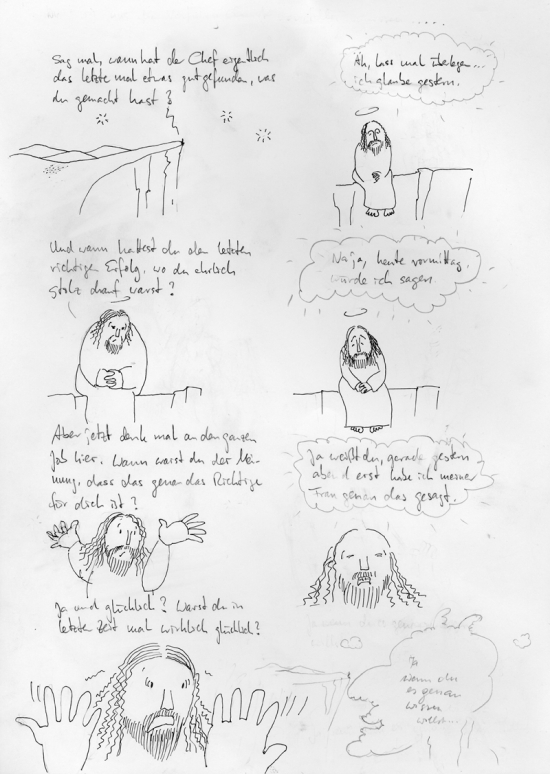 Sag mal, wann hat der Chef eigentlich
das letzte mal etwas gut gefunden, was
du gemacht hast?
Äh, lass mal überlegen...
ich glaube gestern.
Und wann hattest du den letzten
richtigen Erfolg, wo du ehrlich
stolz drauf warst?
Na ja, heute vormittag
würde ich sagen.
Aber jetzt denk mal an den ganzen
Job hier. Wann warst du der Mei-
nung, dass das genau das Richtige
für dich ist?
Ja weißt du, gerade gestern
abend erst habe ich meiner
Frau genau das gesagt.
Ja und glücklich? Warst du in
letzter Zeit mal wirklich glücklich?
wenn du
es genau
wissen
willst...